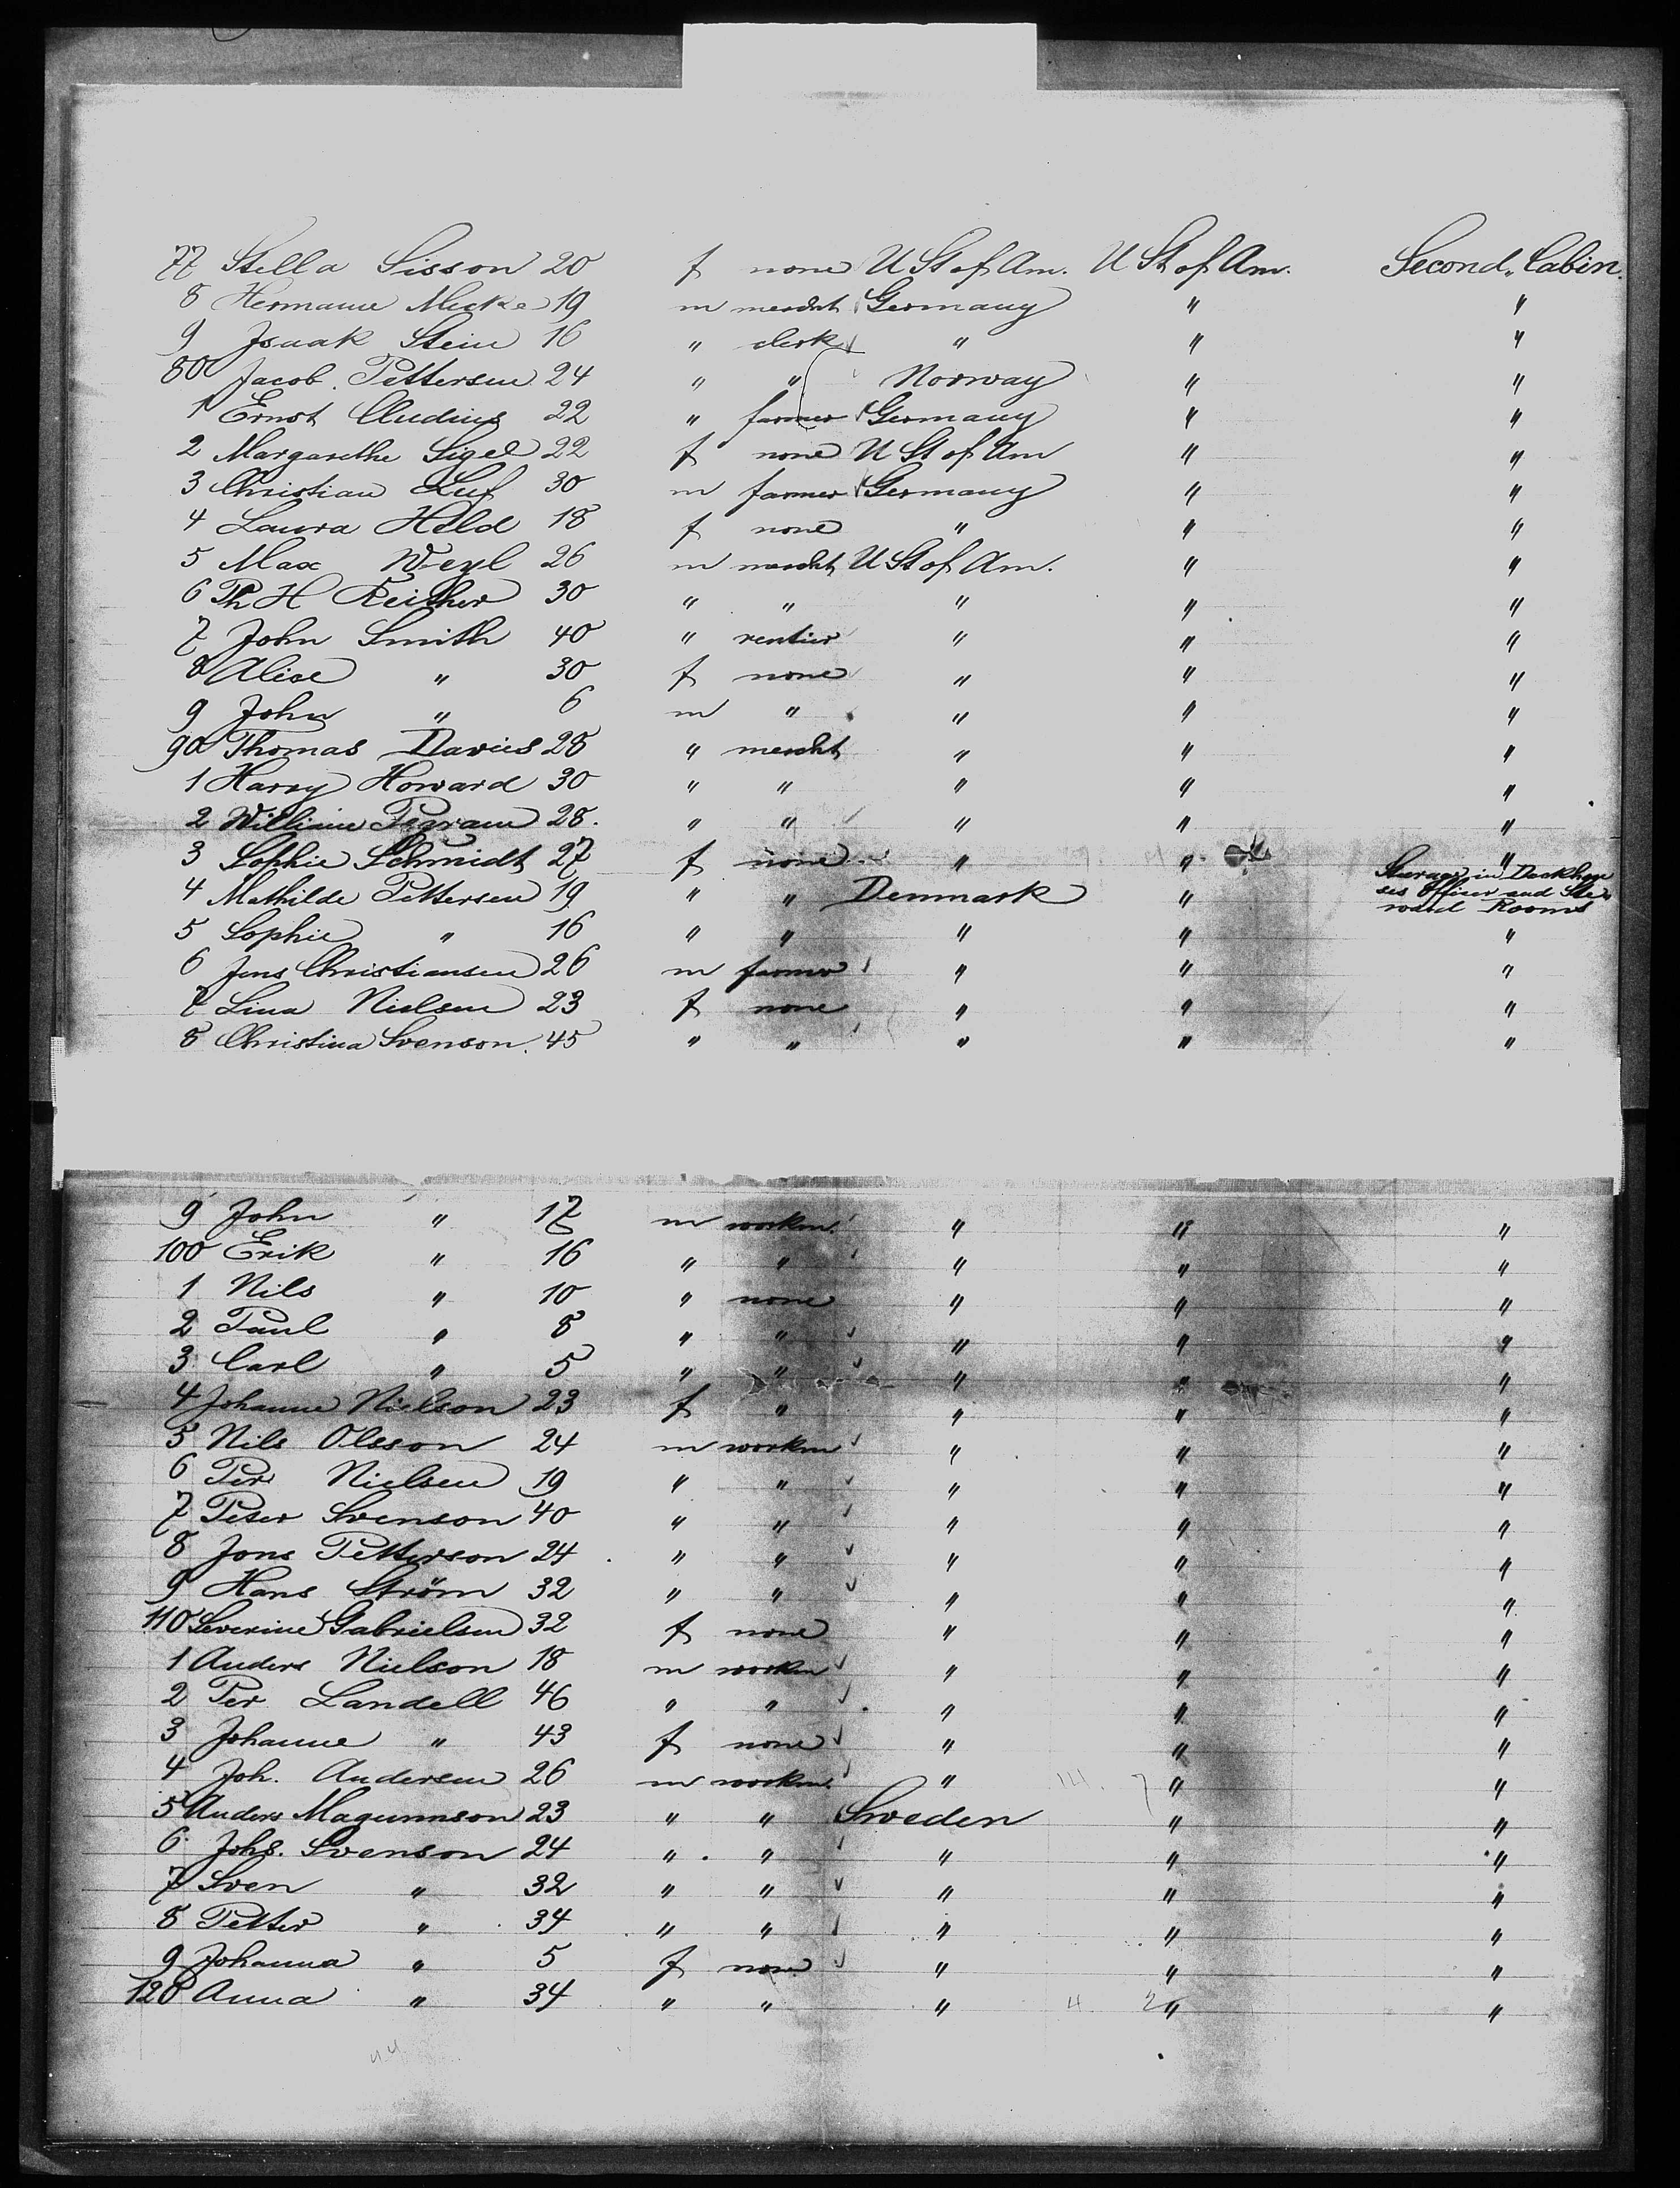 77 Stella Sisson 20 f none U St of Am. U St of Am. Second Cabin.
8 Hermann Micke 19 m mercht Germany " "
9 Isaak Stein 16 " clerk " " "
80 Jacob Pettersen 24 " " Norway " "
1 Ernst Cludius 22 " farmer Germany " "
2 Margarethe Sigel 22 f none U St of Am " "
3 Christian Luf 30 m farmer Germany " "
4 Laura Held 18 f none " " "
5 Max Weyl 26 m mercht U St of Am. " "
6 Th H Reither 30 " " " " "
7 John Smith 40 " rentier " " "
8 Alice " 30 f none " " "
9 John " 6 m " " " "
90 Thomas Davies 28 " mercht " " "
1 Harry Howard 30 " " " " "
2 William Pegram 28. " " " " "
3 Sophie Schmidt 27 f none " " "
4 Mathilde Pettersen 19 " " Denmark " Steerage in Deckhou
ses Officer and Ste
ward Rooms
5 Sophie " 16 " " " " "
6 Jens Christiansen 26 m farmer " " "
7 Lina Nielsen 23 f none " " "
8 Christina Svenson 45 " " " " "
9 John " 17 m workm. " " "
100 Erik " 16 " " " " "
1 Nils " 10 " none " " "
2 Paul " 8 " " " " "
3 Carl " 5 " " " " "
4 Johanne Nielson 23 f " " " "
5 Nils Olsson 24 m workm " " "
6 Per Nielsen 19 " " " " "
7 Peter Svenson 40 " " " " "
8 Jons Petterson 24 " " " " "
9 Hans Ström 32 " " " " "
110 Severine Gabrielsen 32 f none " " "
1 Anders Nielson 18 m workm " " "
2 Per Landell 46 " " " " "
3 Johanne " 43 f none " " "
4 Joh. Andersen 26 m workm. " " "
5 Anders Magunnson 23 " " Sweden " "
6 Johs. Svenson 24 " " " " "
7 Sven " 32 " " " " "
8 Petter " 34 " " " " "
9 Johanna " 5 f none " " "
120 Anna " 34 " " " " "